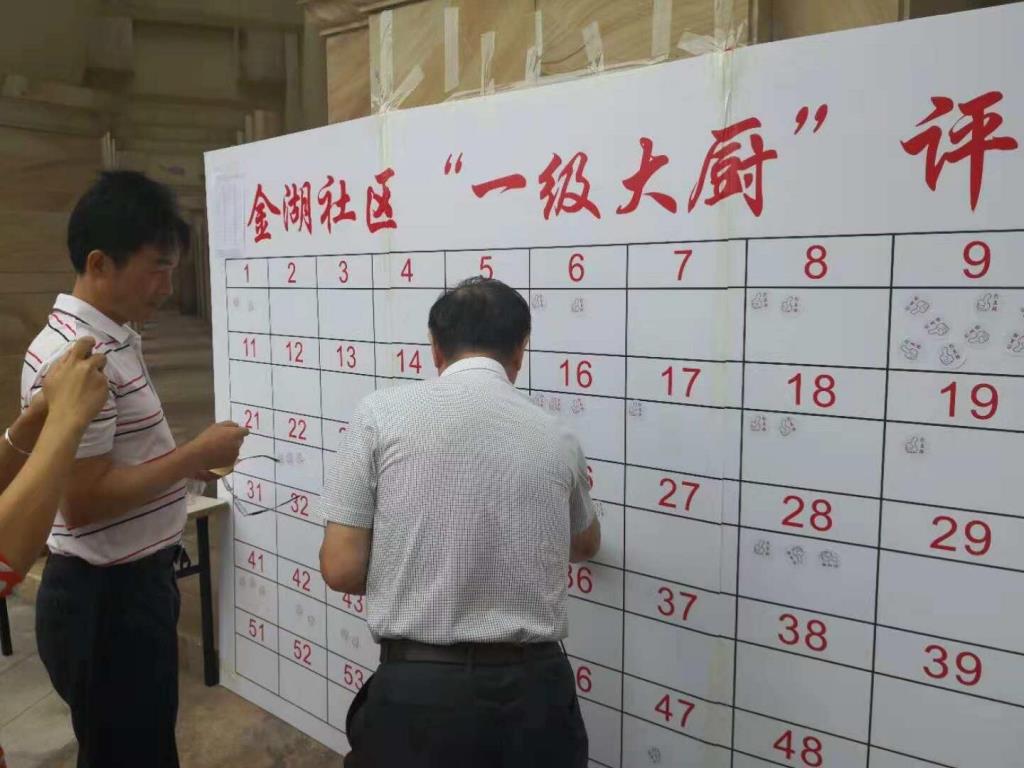 金湖社区 “一级大厨” 评
1 2 3 4 5 6 7 8 9
11 12 13 14 16 17 18 19
21 22 27 28 29
31 32 36 37 38 39
41 42 43 47 48
51 52 53